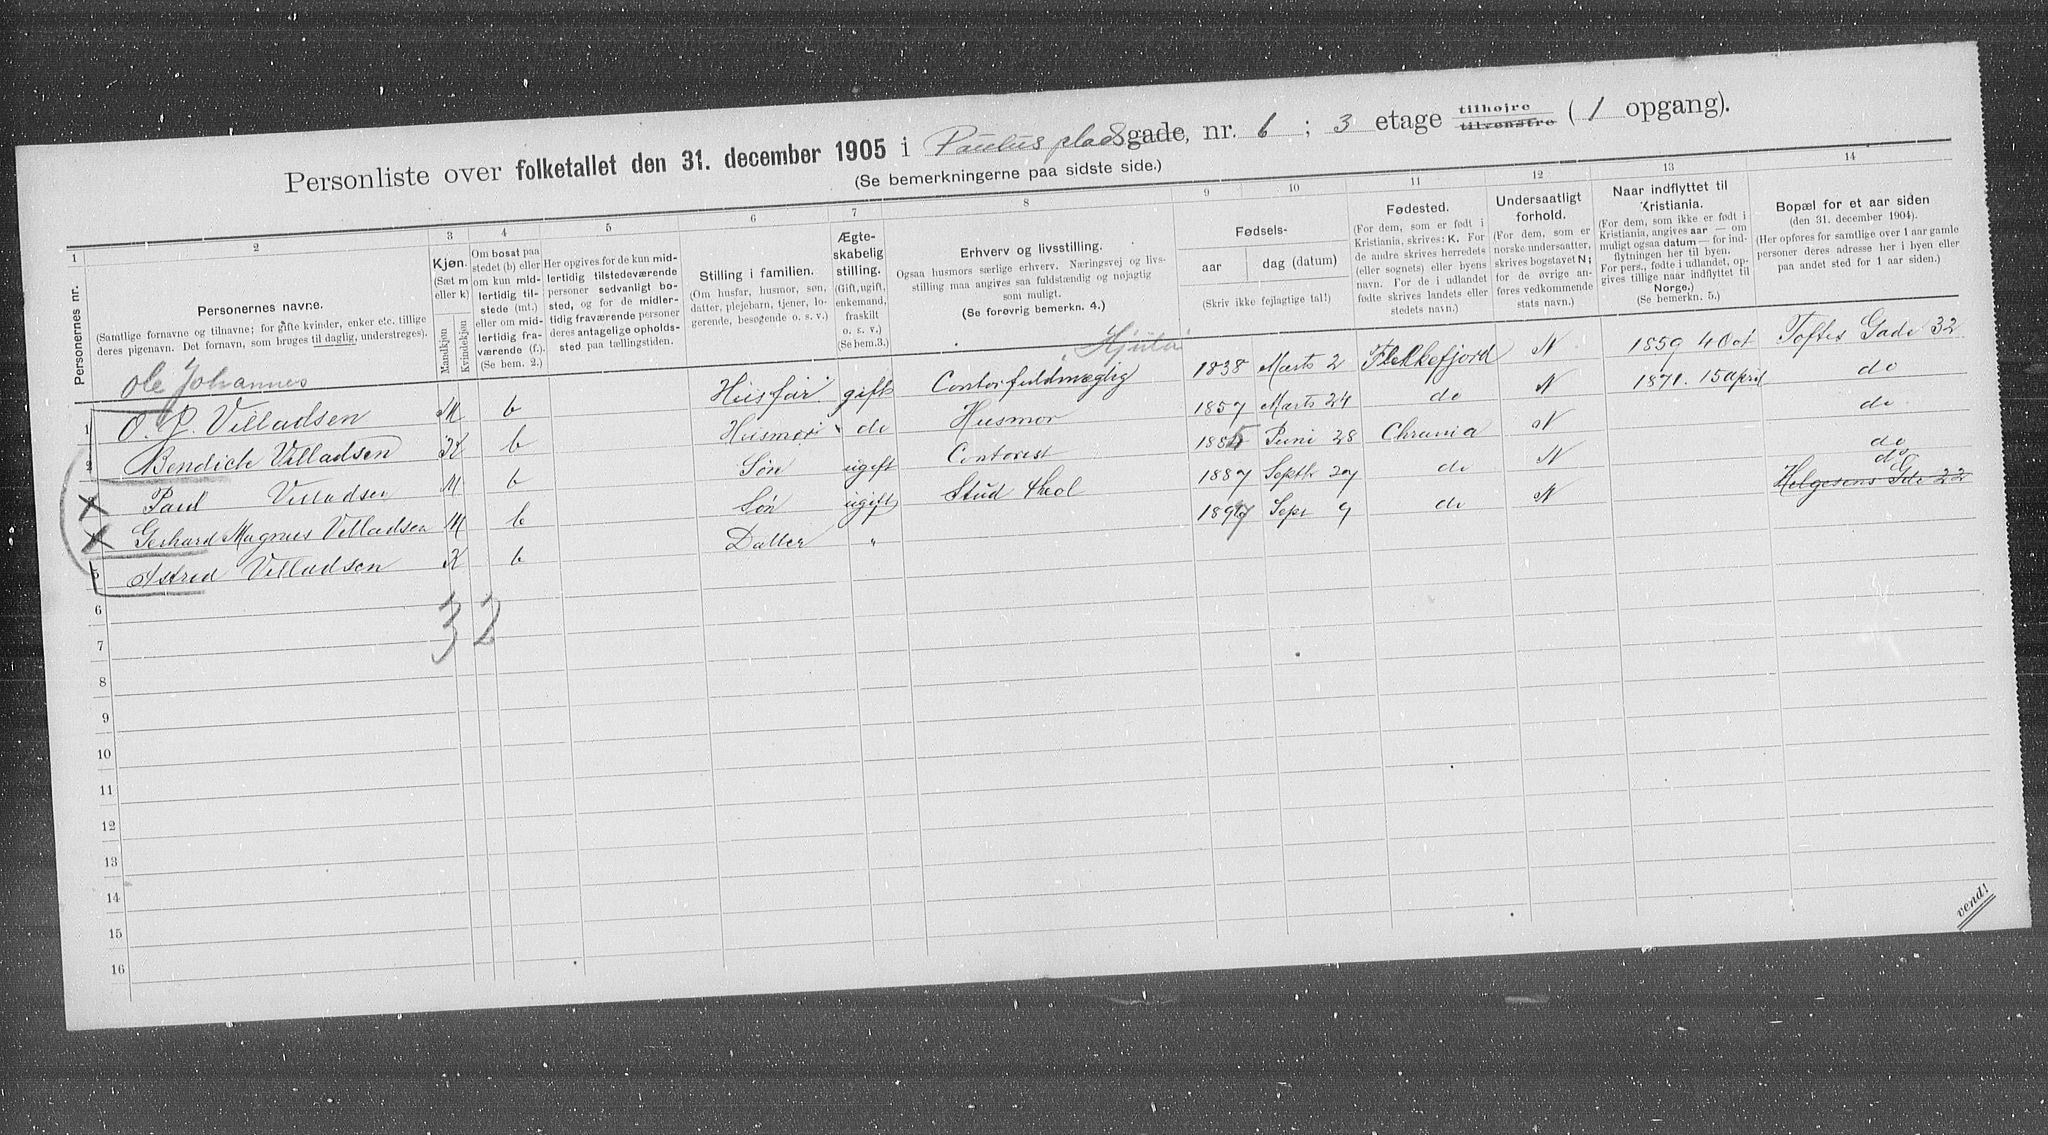 Personliste over folketallet den 31. december 1905 i Paulus plads gade, nr. 6 ; 3 etage tilhøjre tilvenstre ( 1 opgang).
(Se bemerkningerne paa sidste side.)
1 2 3 4 5 6 7 8 9 10 11 12 13 14
Personernes nr.
Personernes navne.
(Samtlige fornavne og tilnavne; for gifte kvinder, enker etc. tillige
deres pigenavn. Det fornavn, som bruges til daglig, understreges).
Kjøn.
(Sæt m
eller k)
Mandkjøn
Kvindekjøn
Om bosat paa
stedet (b) eller
om kun mid-
lertidig til-
stede (mt.)
eller om mid-
lertidig fra-
værende (f.).
(Se bem. 2.)
Her opgives for de kun mid-
lertidig tilstedeværende
personer sedvanligt bo-
sted, og for de midler-
tidig fraværende personer
deres antagelige opholds-
sted paa tællingstiden.
Stilling i familien.
(Om husfar, husmor, søn,
datter, plejebarn, tjener, lo-
gerende, besøgende o. s. v.)
Ægte-
skabelig
stilling.
(Gift, ugift,
enkemand,
fraskilt
o. s. v.)
(Se bem.3.)
Erhverv og livsstilling.
Ogsaa husmors særlige erhverv. Næringsvej og livs-
stilling maa angives saa fuldstændig og nøjagtig
som muligt.
(Se forøvrig bemerkn. 4.)
Fødsels-
aar dag (datum)
(Skriv ikke fejlagtige tal!)
Fødested.
(For dem, som er født i
Kristiania, skrives: K. For
de andre skrives herredets
(eller sognets) eller byens
navn. For de i udlandet
fødte skrives landets eller
stedets navn.)
Undersaatligt
forhold.
(For dem, som er
norske undersaatter,
skrives bogstavet N;
for de øvrige an-
føres vedkommende
stats navn.)
Naar indflyttet til
Kristiania.
(For dem, som ikke er født i
Kristiania, angives aar — om
muligt ogsaa datum — for ind-
flytningen her til byen.
For pers., fødte i udlandet, op-
gives tillige naar indflyttet til
Norge.)
(Se bemerkn. 5.)
Bopæl for et aar siden
(den 31. december 1904).
(Her opføres for samtlige over 1 aar gamle
personer deres adresse her i byen eller
paa andet sted for 1 aar siden.)
Ole Johannes
1 O. J. Villadsen M b Husfar gift Contorfuldmægtig 1838 Marts 2 Flekkefjord N 1859 4 Oct Toftes Gade 32
2 Bendicte Villadsen K b Husmor do Husmor 1857 Marts 24 do N 1871. 15 april do
Paul Villadsen M b Søn ugift Contorist 1885 Juni 28 Chrania N do
Gerhard Magnus Villadsen M b Søn ugift Stud theol 1887 Septbr 27 do N do
5 Astrid Villadsen K b Datter " 1897 Sept 9 do N do Helgesens Gde 22
3 2
6
7
8
9
10
11
12
13
14
15
16
vend!